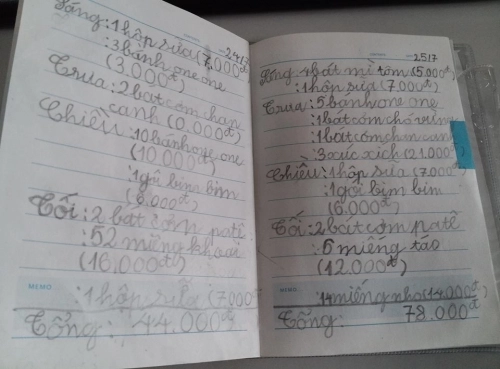 -24/7
Sáng: 1 hộp sữa (7.000đ)
: 3 bánh one one
(3.000đ)
Trưa: 2 bát cơm han
canh (0.000đ)
Chiều: 10 bánh one one
(10.000đ)
: 1 gói bim bim
(6.000đ)
Tối: 2 bát cơm patê
: 52 miếng khoai
(16.000đ)
MEMO
: 1 hộp sữa (7.000đ)
Tổng: 44.000đ
-25/7
Sáng: 4 bát mì tôm (5.000đ)
: 1 hộp sữa (7.000đ)
Trưa: 5 bánh one one
: 1 bát cơm chó vừng
: 1 bát cơm chan canh
: 3 xúc xích (21.000đ)
Chiều: 1 hộp sữa (7.000đ)
: 1 gói bim bim
(6.000đ)
Tối: 2 bát cơm patê
: 6 miếng táo
(12.000đ)
MEMO
: 14 miếng nho (14.000đ)
Tổng: 78.000đ